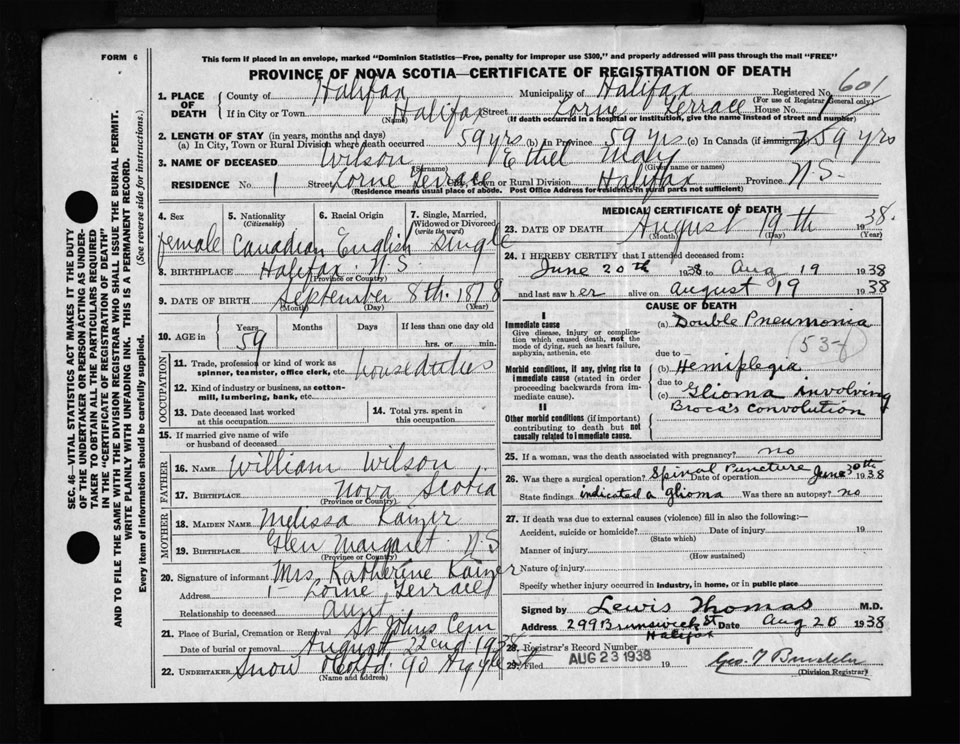 FORM 6
This form if placed in an envelope, marked "Dominion Statistics—Free, penalty for improper use $300," and properly addressed will pass through the mail "FREE"
PROVINCE OF NOVA SCOTIA—CERTIFICATE OF REGISTRATION OF DEATH
Registered No. 601
(For use of Registrar General only)
1. PLACE OF DEATH
County of Halifax Municipality of Halifax
If in City or Town Halifax Street Lorne Terrace House No. 1
(Name) (If death occurred in a hospital or institution, give the name instead of street and number)
2. LENGTH OF STAY (in years, months and days)
(a) In City, Town or Rural Division where death occurred 59 yrs (b) In Province 59 yrs (c) In Canada (if immigrant) 59 yrs
3. NAME OF DECEASED Wilson Ethel May
(Surname) (Given name or names)
RESIDENCE No. 1 Street Lorne Terrace City, Town or Rural Division Halifax Province N.S.
(Residence means usual place of abode. Post Office Address for residents in rural parts not sufficient)
4. Sex female
5. Nationality (Citizenship) Canadian
6. Racial Origin English
7. Single, Married, Widowed or Divorced (write the word) Single
8. BIRTHPLACE Halifax N.S.
(Province or Country)
9. DATE OF BIRTH September 8th. 1878
(Month) (Day) (Year)
10. AGE in Years 59 Months Days If less than one day hrs. or min.
OCCUPATION
11. Trade, profession or kind of work as spinner, teamster, office clerk, etc. house duties
12. Kind of industry or business, as cotton-mill, lumbering, bank, etc.
13. Date deceased last worked at this occupation
14. Total yrs. spent in this occupation
15. If married give name of wife or husband of deceased
FATHER
16. NAME William Wilson
17. BIRTHPLACE Nova Scotia
(Province or Country)
MOTHER
18. MAIDEN NAME Melissa Kaizer
19. BIRTHPLACE Glen Margaret N.S
(Province or Country)
20. Signature of informant Mrs. Katherine Kaizer
Address 1- Lorne Terrace
Relationship to deceased aunt
21. Place of Burial, Cremation or Removal St Johns Cem
Date of burial or removal August 22nd 1938
22. UNDERTAKER Snow & Co Ltd. 90 Argyle St
(Name and address)
MEDICAL CERTIFICATE OF DEATH
23. DATE OF DEATH August 19th 1938.
(Month) (Day) (Year)
24. I HEREBY CERTIFY that I attended deceased from:
June 20th 1938 to Aug 19 1938
and last saw her alive on august 19 1938
CAUSE OF DEATH
I
Immediate cause
Give disease, injury or complication which caused death, not the mode of dying, such as heart failure, asphyxia, asthenia, etc
(a) Double Pneumonia
due to
Morbid conditions, if any, giving rise to immediate cause (stated in order proceeding backwards from immediate cause).
(b) Hemiplegia
due to
(c) Glioma involving
Broca's convolution
II
Other morbid conditions (if important) contributing to death but not causally related to immediate cause.
25. If a woman, was the death associated with pregnancy? no
26. Was there a surgical operation? Spinal Puncture Date of operation June 30th 1938
State findings indicated a glioma Was there an autopsy? no
27. If death was due to external causes (violence) fill in also the following:—
Accident, suicide or homicide? Date of injury 19
(State which)
Manner of injury
(How sustained)
Nature of injury
Specify whether injury occurred in industry, in home, or in public place
Signed by Lewis Thomas M.D.
Address 299 Brunswick St Halifax Date Aug 20 1938
28. Registrar's Record Number
29. Filed AUG 23 1938 19
(Division Registrar)
SEC. 46—VITAL STATISTICS ACT MAKES IT THE DUTY OF THE UNDERTAKER OR PERSON ACTING AS UNDERTAKER TO OBTAIN ALL THE PARTICULARS REQUIRED IN THE "CERTIFICATE OF REGISTRATION OF DEATH"
AND TO FILE THE SAME WITH THE DIVISION REGISTRAR WHO SHALL ISSUE THE BURIAL PERMIT.
WRITE PLAINLY WITH UNFADING INK. THIS IS A PERMANENT RECORD.
Every item of information should be carefully supplied. (See reverse side for instructions.)